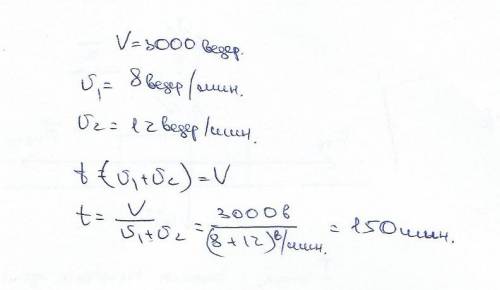 V = 3000 ведер.
υ₁ = 8 ведер/мин.
υ₂ = 12 ведер/мин.
t = (υ₁ + υ₂) = V
t = V / (υ₁ + υ₂) = 3000 в / (8 + 12) в/мин. = 150 мин.